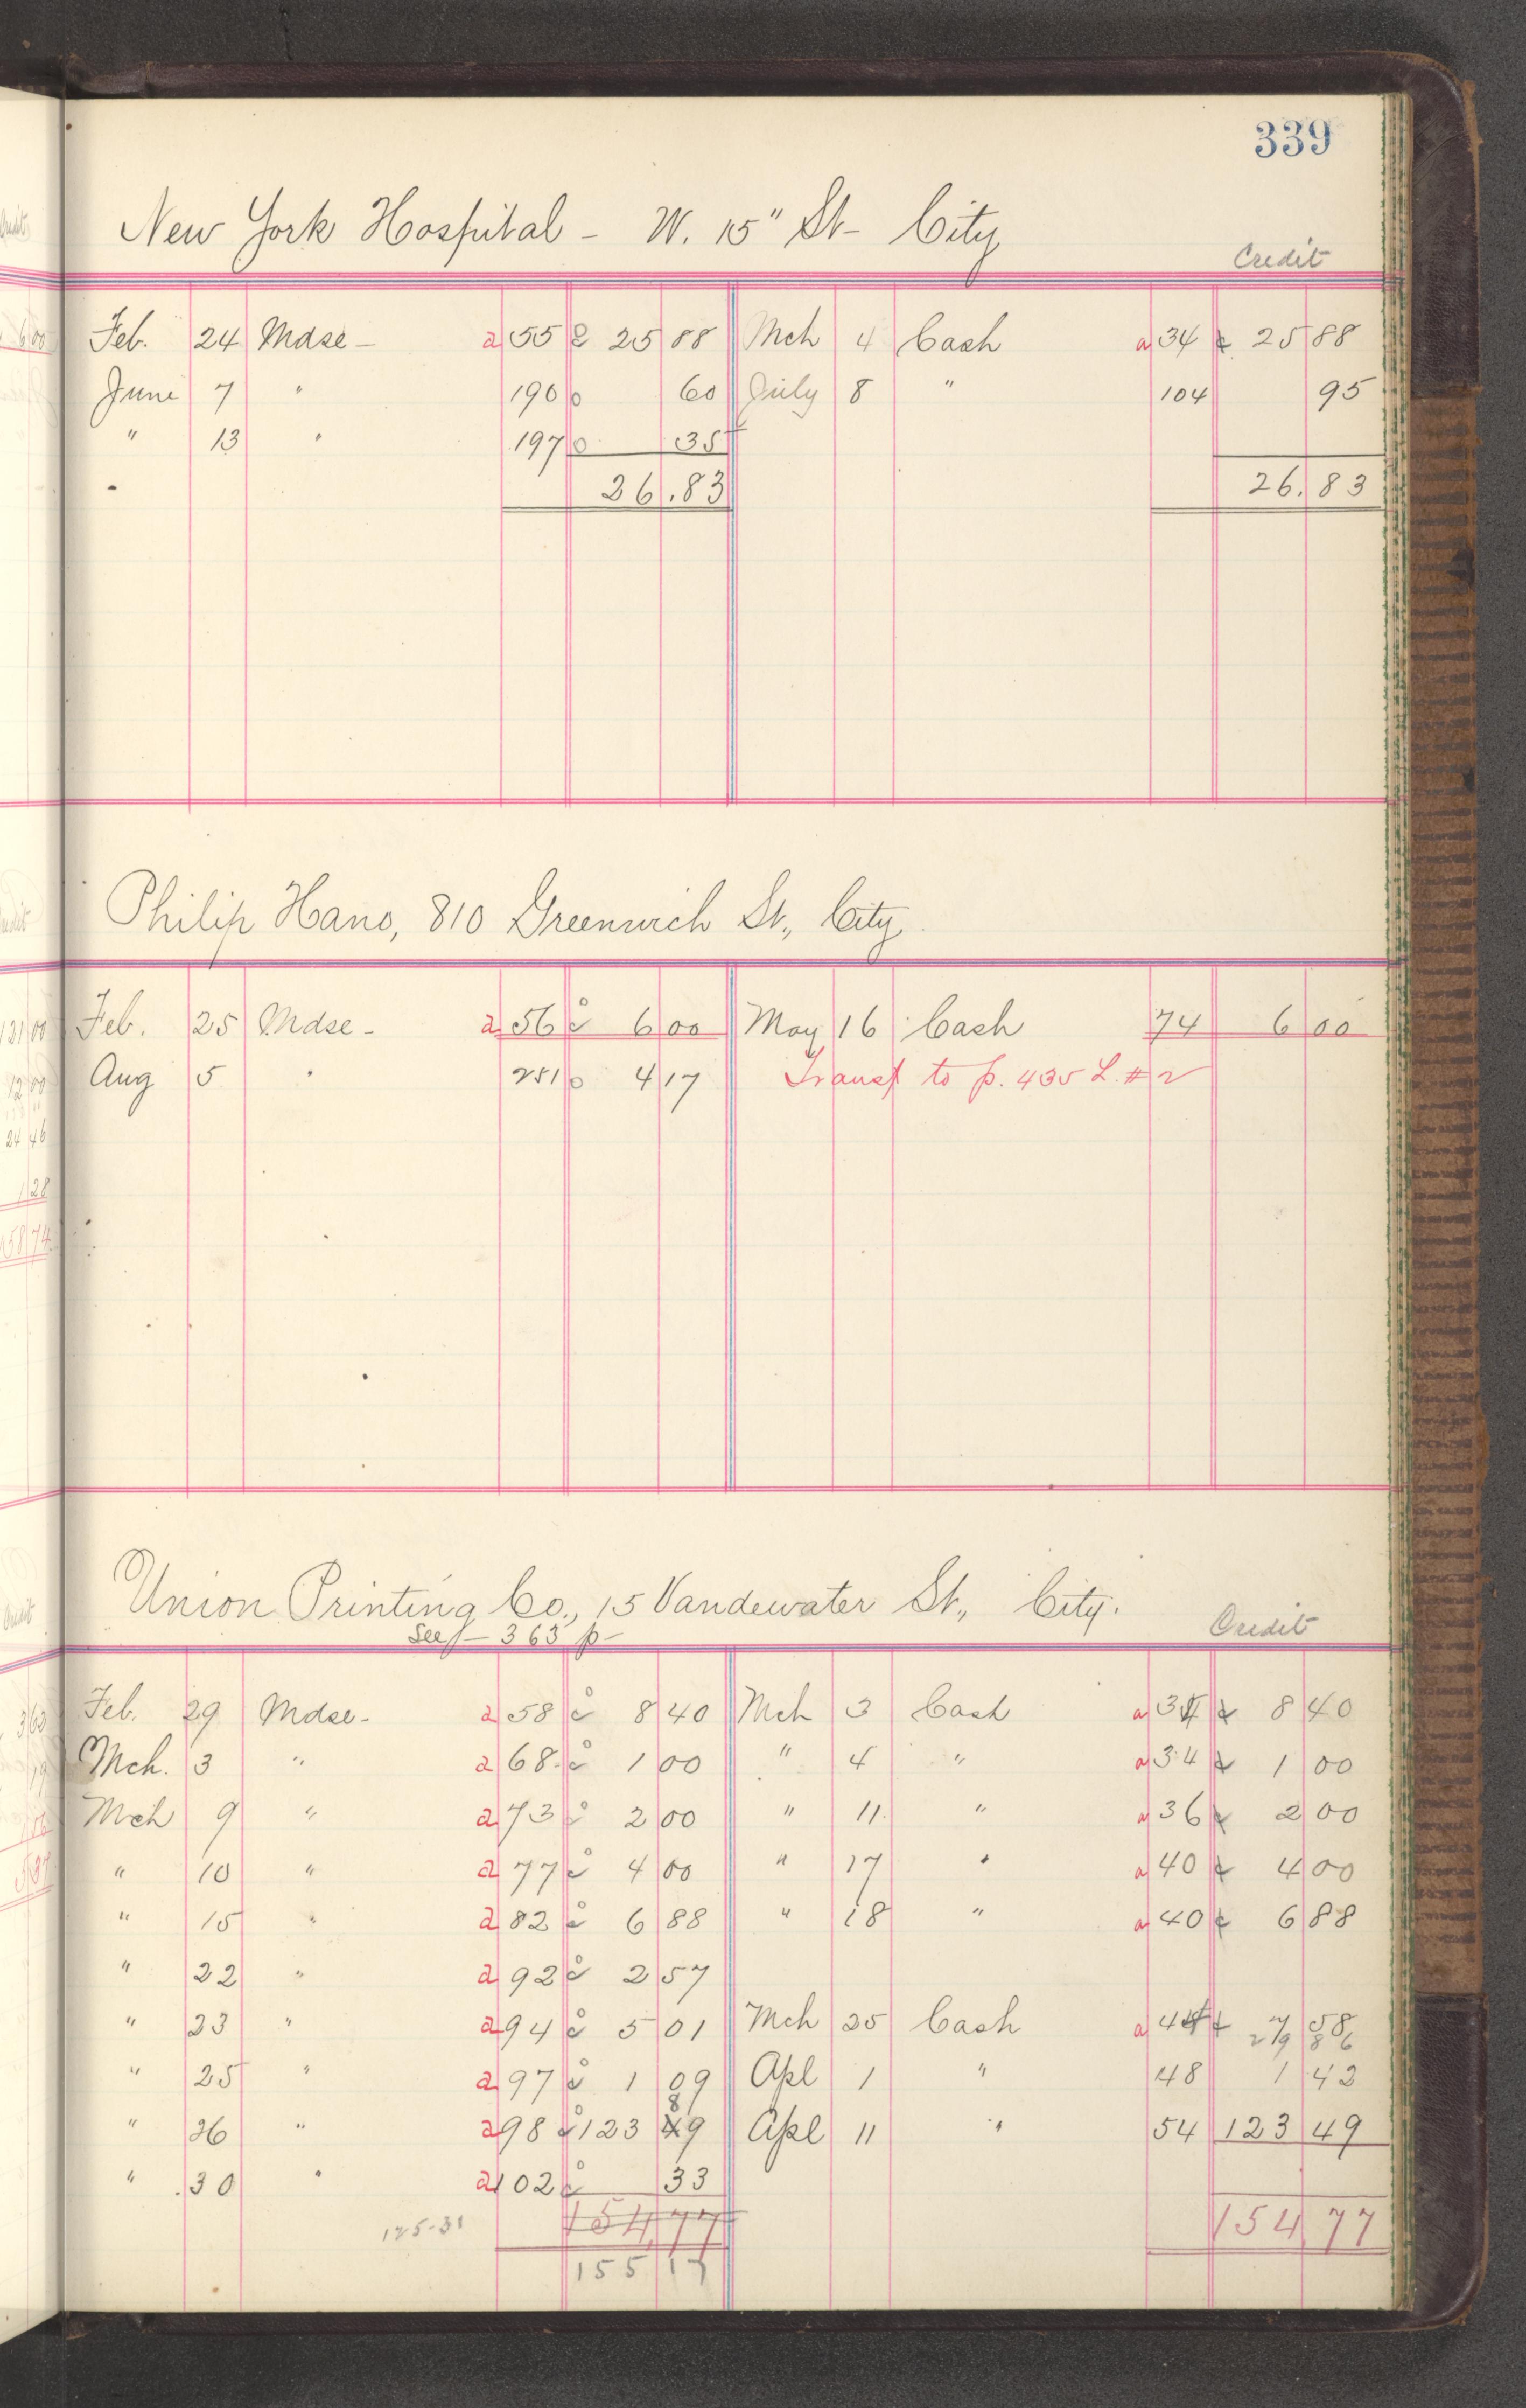 339
New York Hospital - W. 15" St - City
Credit
Feb. 24 Mdse - a 55 25 88 Mch 4 Cash a 34 25 88
June 7 " 190 0 60 July 8 " 104 95
" 13 " 197 0 35
26.83 26.83
Philip Hano, 810 Greenwich St., City
Feb. 25 Mdse - a 56 6 00 May 16 Cash 74 6 00
Aug 5 " 251 0 4 17 Transf to p. 435 L. # 2
Union Printing Co., 15 Vandewater St., City.
See - 363 p - Credit
Feb. 29 Mdse - a 58 8 40 Mch 3 Cash a 34 8 40
Mch. 3 " a 68 1 00 " 4 " a 34 1 00
Mch 9 " a 73 2 00 " 11 " a 36 2 00
" 10 " a 77 4 00 " 17 " a 40 4 00
" 15 " a 82 6 88 " 18 " a 40 6 88
" 22 " a 92 2 57
" 23 " a 94 5 01 Mch 25 Cash a 44 7 58
" 25 " a 97 1 09 Apl 1 " 48 1 42
" 26 " a 98 123 49 Apl 11 " 54 123 49
" 30 " a 102 33
125-31 154 77 154 77
155 17